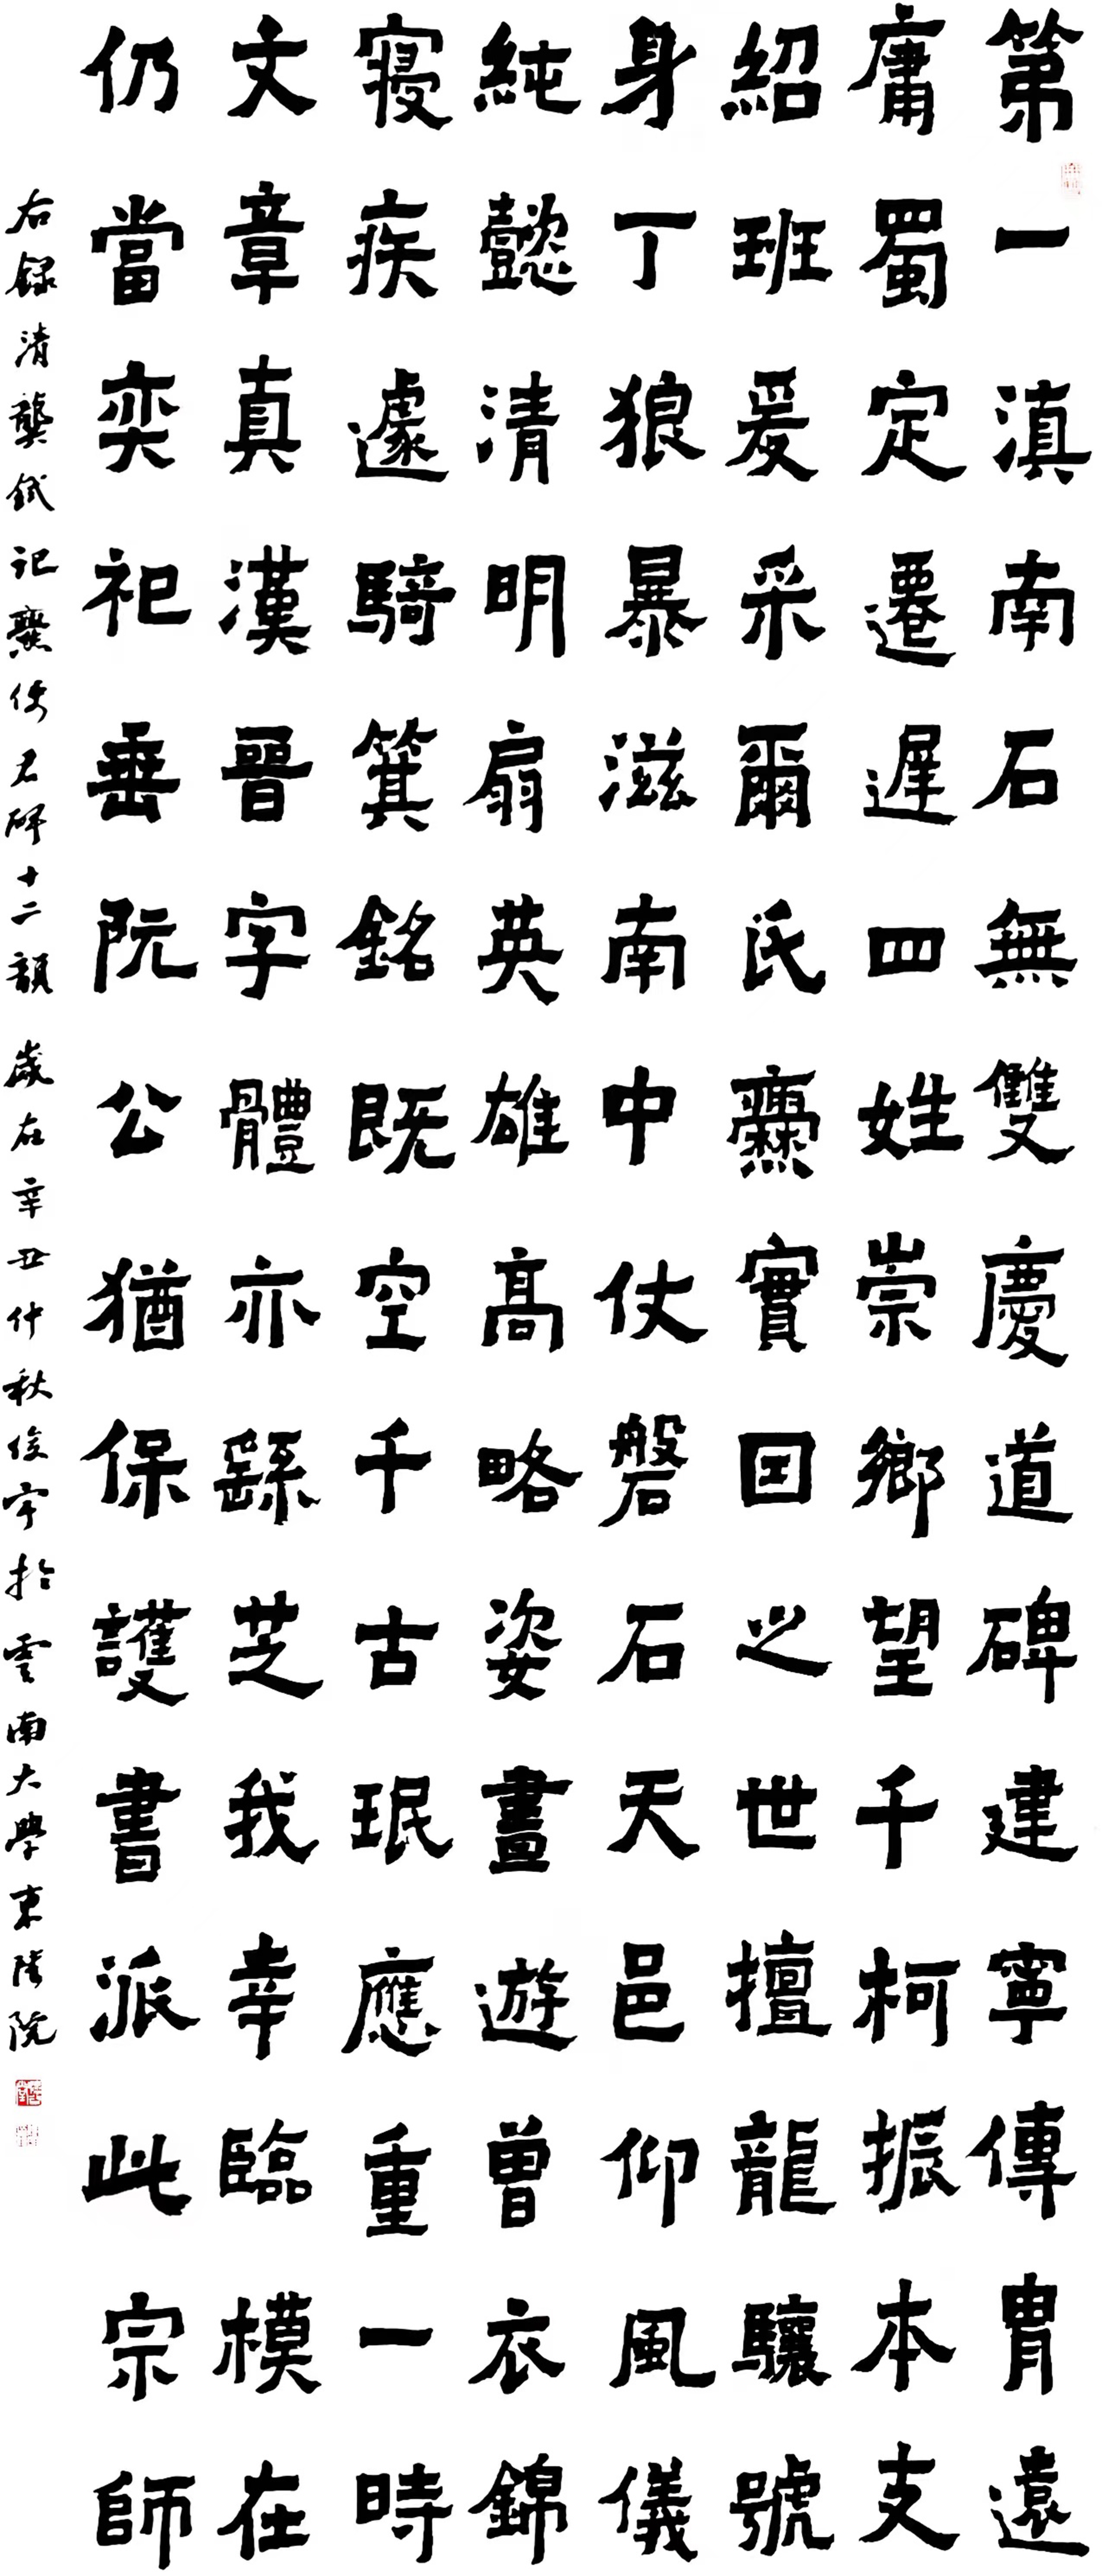 第一滇南石無雙慶道碑建寧傳胄遠
庸蜀定遷遲四姓崇鄉望千柯振本支
紹班爰采爾氏爨實囯之世擅龍驤號
身丁狼暴滋南中仗磐石天邑仰風儀
純懿清明扇英雄高略姿晝遊曾衣錦
寢疾遽騎箕銘既空千古珉應重一時
文章真漢晉字體亦繇芝我幸臨模在
仍當奕祀垂阮公猶保護書派此宗師
右錄清龔鉽記爨使君碑十二韻歲在辛丑仲秋俊宇於雲南大學東陸院